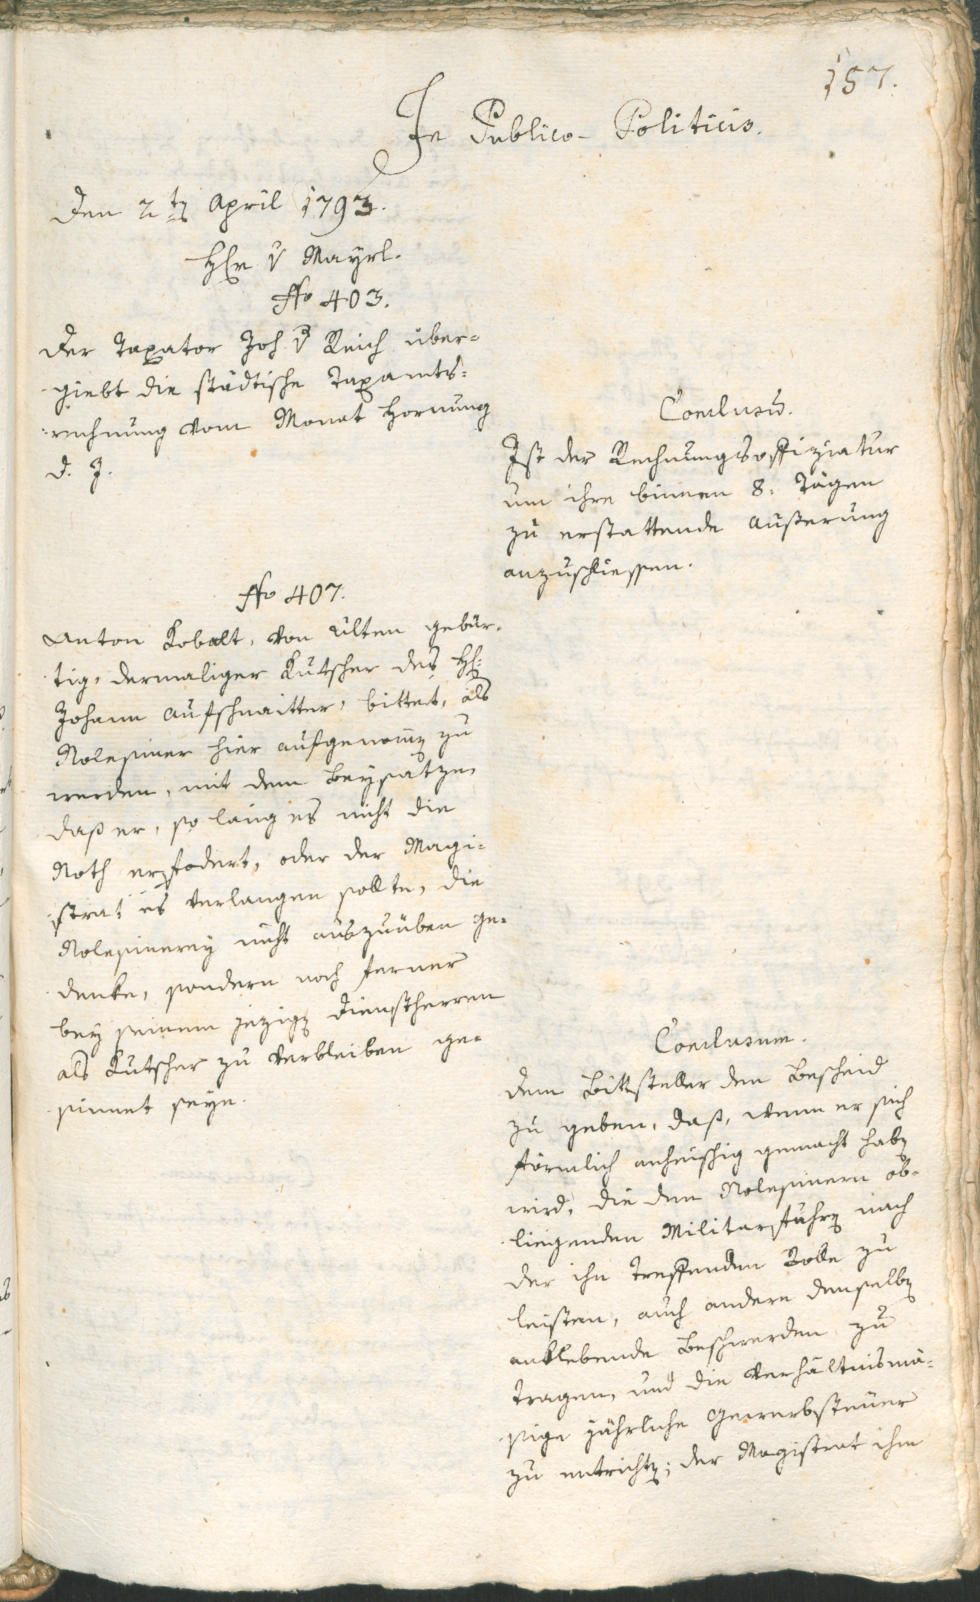 157.
In Publico-Politicis.
Den 2ten April 1793.
Hr v Mayrl.
No 403.
Der Taxator Joh. v Reich über-
giebt die städtische Taxamts-
rechnung vom Monat Hornung
d. J.
Conclusum.
Ist der Rechnungsoffiziatur
um ihre binnen 8. Tägen
zu erstattende Äußerung
anzuschliessen.
No 407.
Anton Kobalt, von Ulten gebür-
tig, dermaliger Kutscher des H:
Johann Aufschnaitter, bittet, als
Rolesiner hier aufgenomen zu
werden, mit dem Beysatze,
daß er, so lang es nicht die
Noth erfodert, oder der Magi-
strat es verlangen sollte, die
Rolesinerey nicht auszuüben ge-
denke, sondern noch ferner
bey seinem jezigen Dienstherren
als Kutscher zu verbleiben ge-
sinnet seye.
Conclusum.
Dem Bittsteller den Bescheid
zu geben, daß, wenn er sich
förmlich anheischig gemacht haben
wird, die den Rolesinern ob-
liegenden Militarfuhren nach
der ihn treffenden Rolle zu
leisten, auch andere denselben
anklebende Beschwerden zu
tragen, und die verhältnismä-
sige jährliche Gewerbsteuer
zu entrichten; der Magistrat ihm